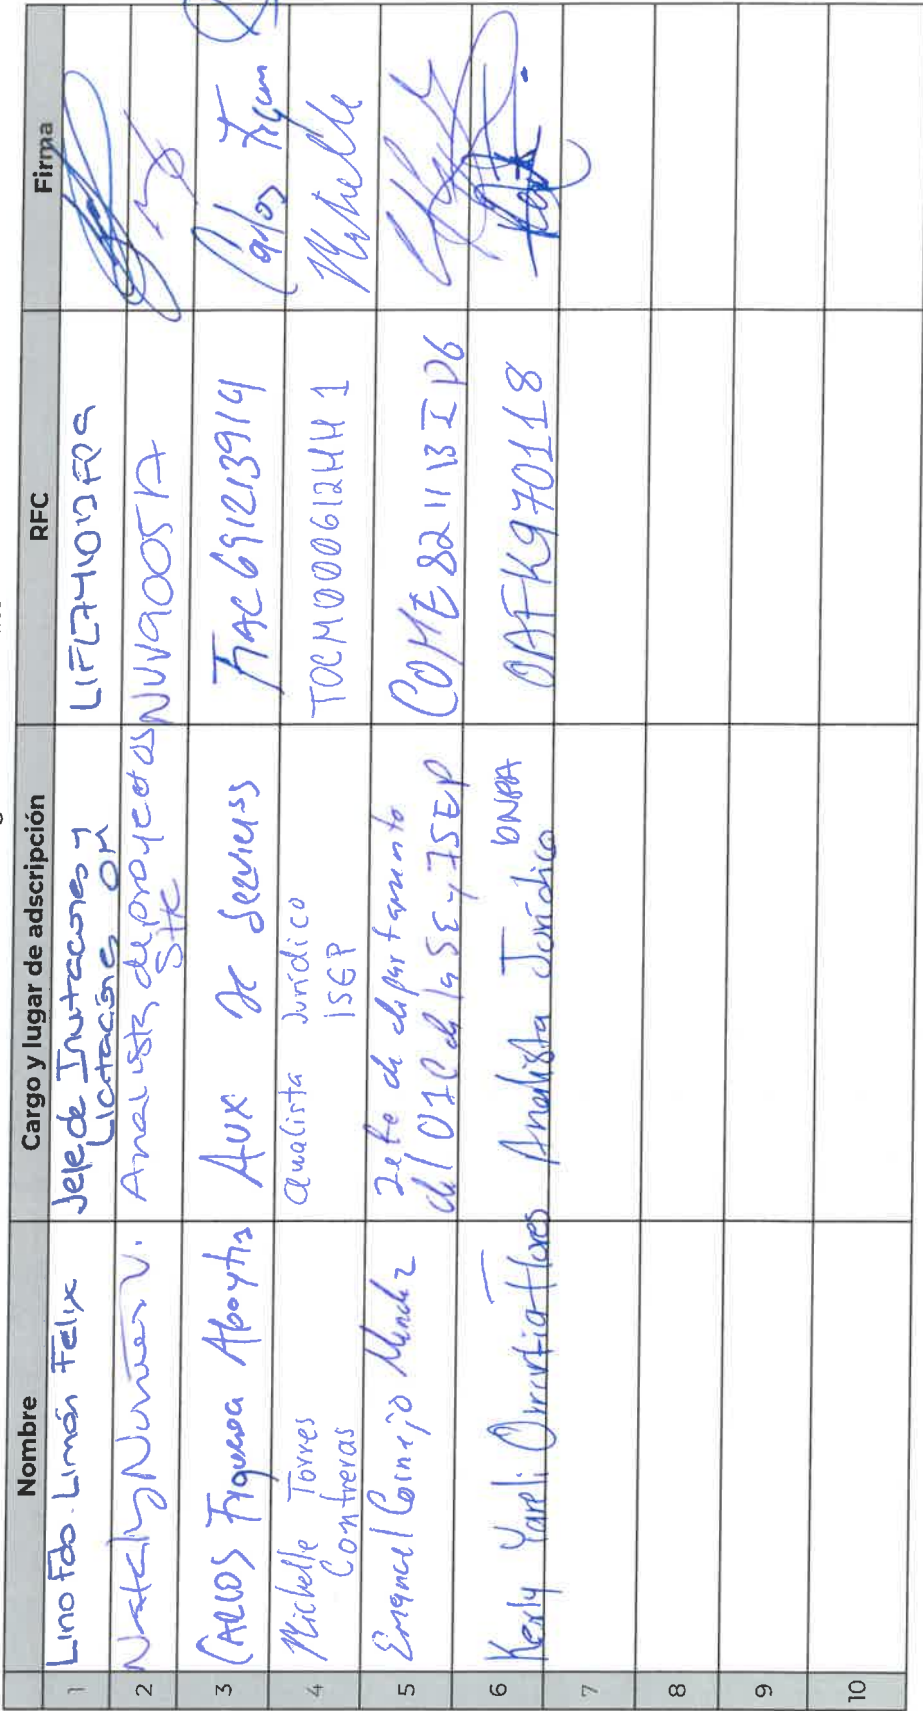 Nombre Cargo y lugar de adscripción RFC Firma
1 Lino Fdo. Limón Félix Jefe de Invitaciones y
Licitaciones OM
2 Nataly Nunez V. Analista de proyectos
STC
3 CARLOS Figueroa Aboytia Aux de Servicios FIAC691213914 Carlos
4 Michelle Torres
Contreras
analista Jurídico
ISEP
TOCM000612HH1 Michelle
5 Cornejo Jefe de departamento
del OIC de la SE y ISEP
COME821113IP6
6 Kerly Yareli Flores Analista Jurídico OAFK970118
7
8
9
10